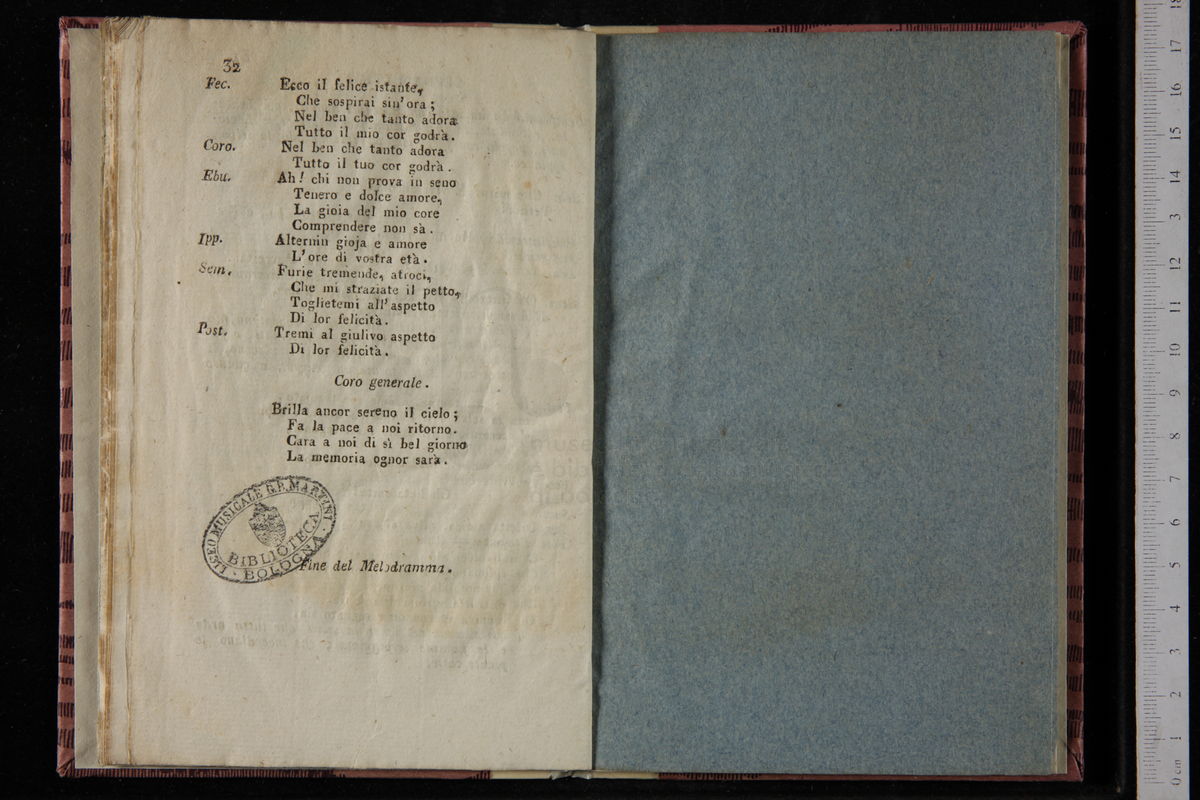 32
Fec. Ecco il felice istante,
Che sospirai sin' ora ;
Nel ben che tanto adora
Tutto il mio cor godrà.
Coro. Nel ben che tanto adora
Tutto il tuo cor godrà .
Ebu. Ah! chi non prova in seno
Tenero e dolce amore,
La gioia del mio core
Comprendere non sà .
Ipp. Alternin gioja e amore
L'ore di vostra età .
Sem. Furie tremende, atroci,
Che mi straziate il petto,
Toglietemi all' aspetto
Di lor felicità .
Post. Tremi al giulivo aspetto
Di lor felicità .
Coro generale .
Brilla ancor sereno il cielo ;
Fa la pace a noi ritorno.
Cara a noi di sì bel giorno
La memoria ognor sarà .
LICEO MUSICALE G.B. MARTINI
BIBLIOTECA
· BOLOGNA ·
Fine del Melodramma .
18
17
16
15
14
3
12
11
10
9
8
7
6
5
4
3
2
1
0 cm